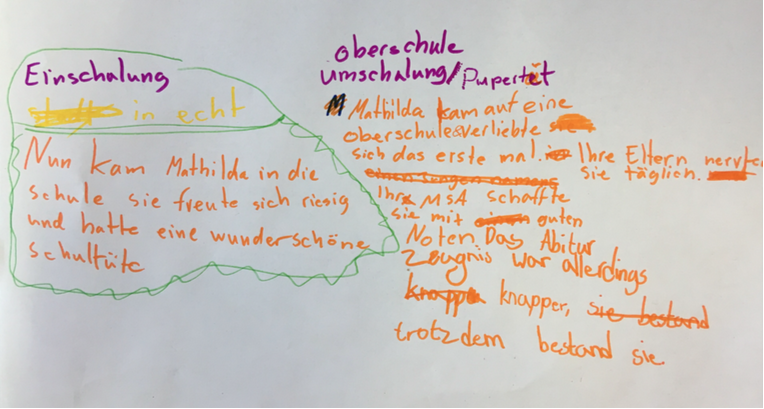 Einschalung
in echt
Nun kam Mathilda in die
schule sie freute sich riesig
und hatte eine wunderschöne
schultüte
oberschule
umschalung/Pupertät
Mathilda kam auf eine
oberschule&verliebte
sich das erste mal. Ihre Eltern nervten
einen Jungen namens sie täglich.
Ihr MSA schaffte
sie mit guten
Noten. Das Abitur
zeugnis war allerdings
knapp knapper, sie bestand
trotzdem bestand sie